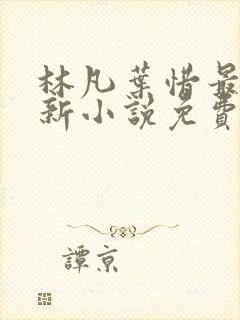 林凡葉惜最
新小說免費
譚京